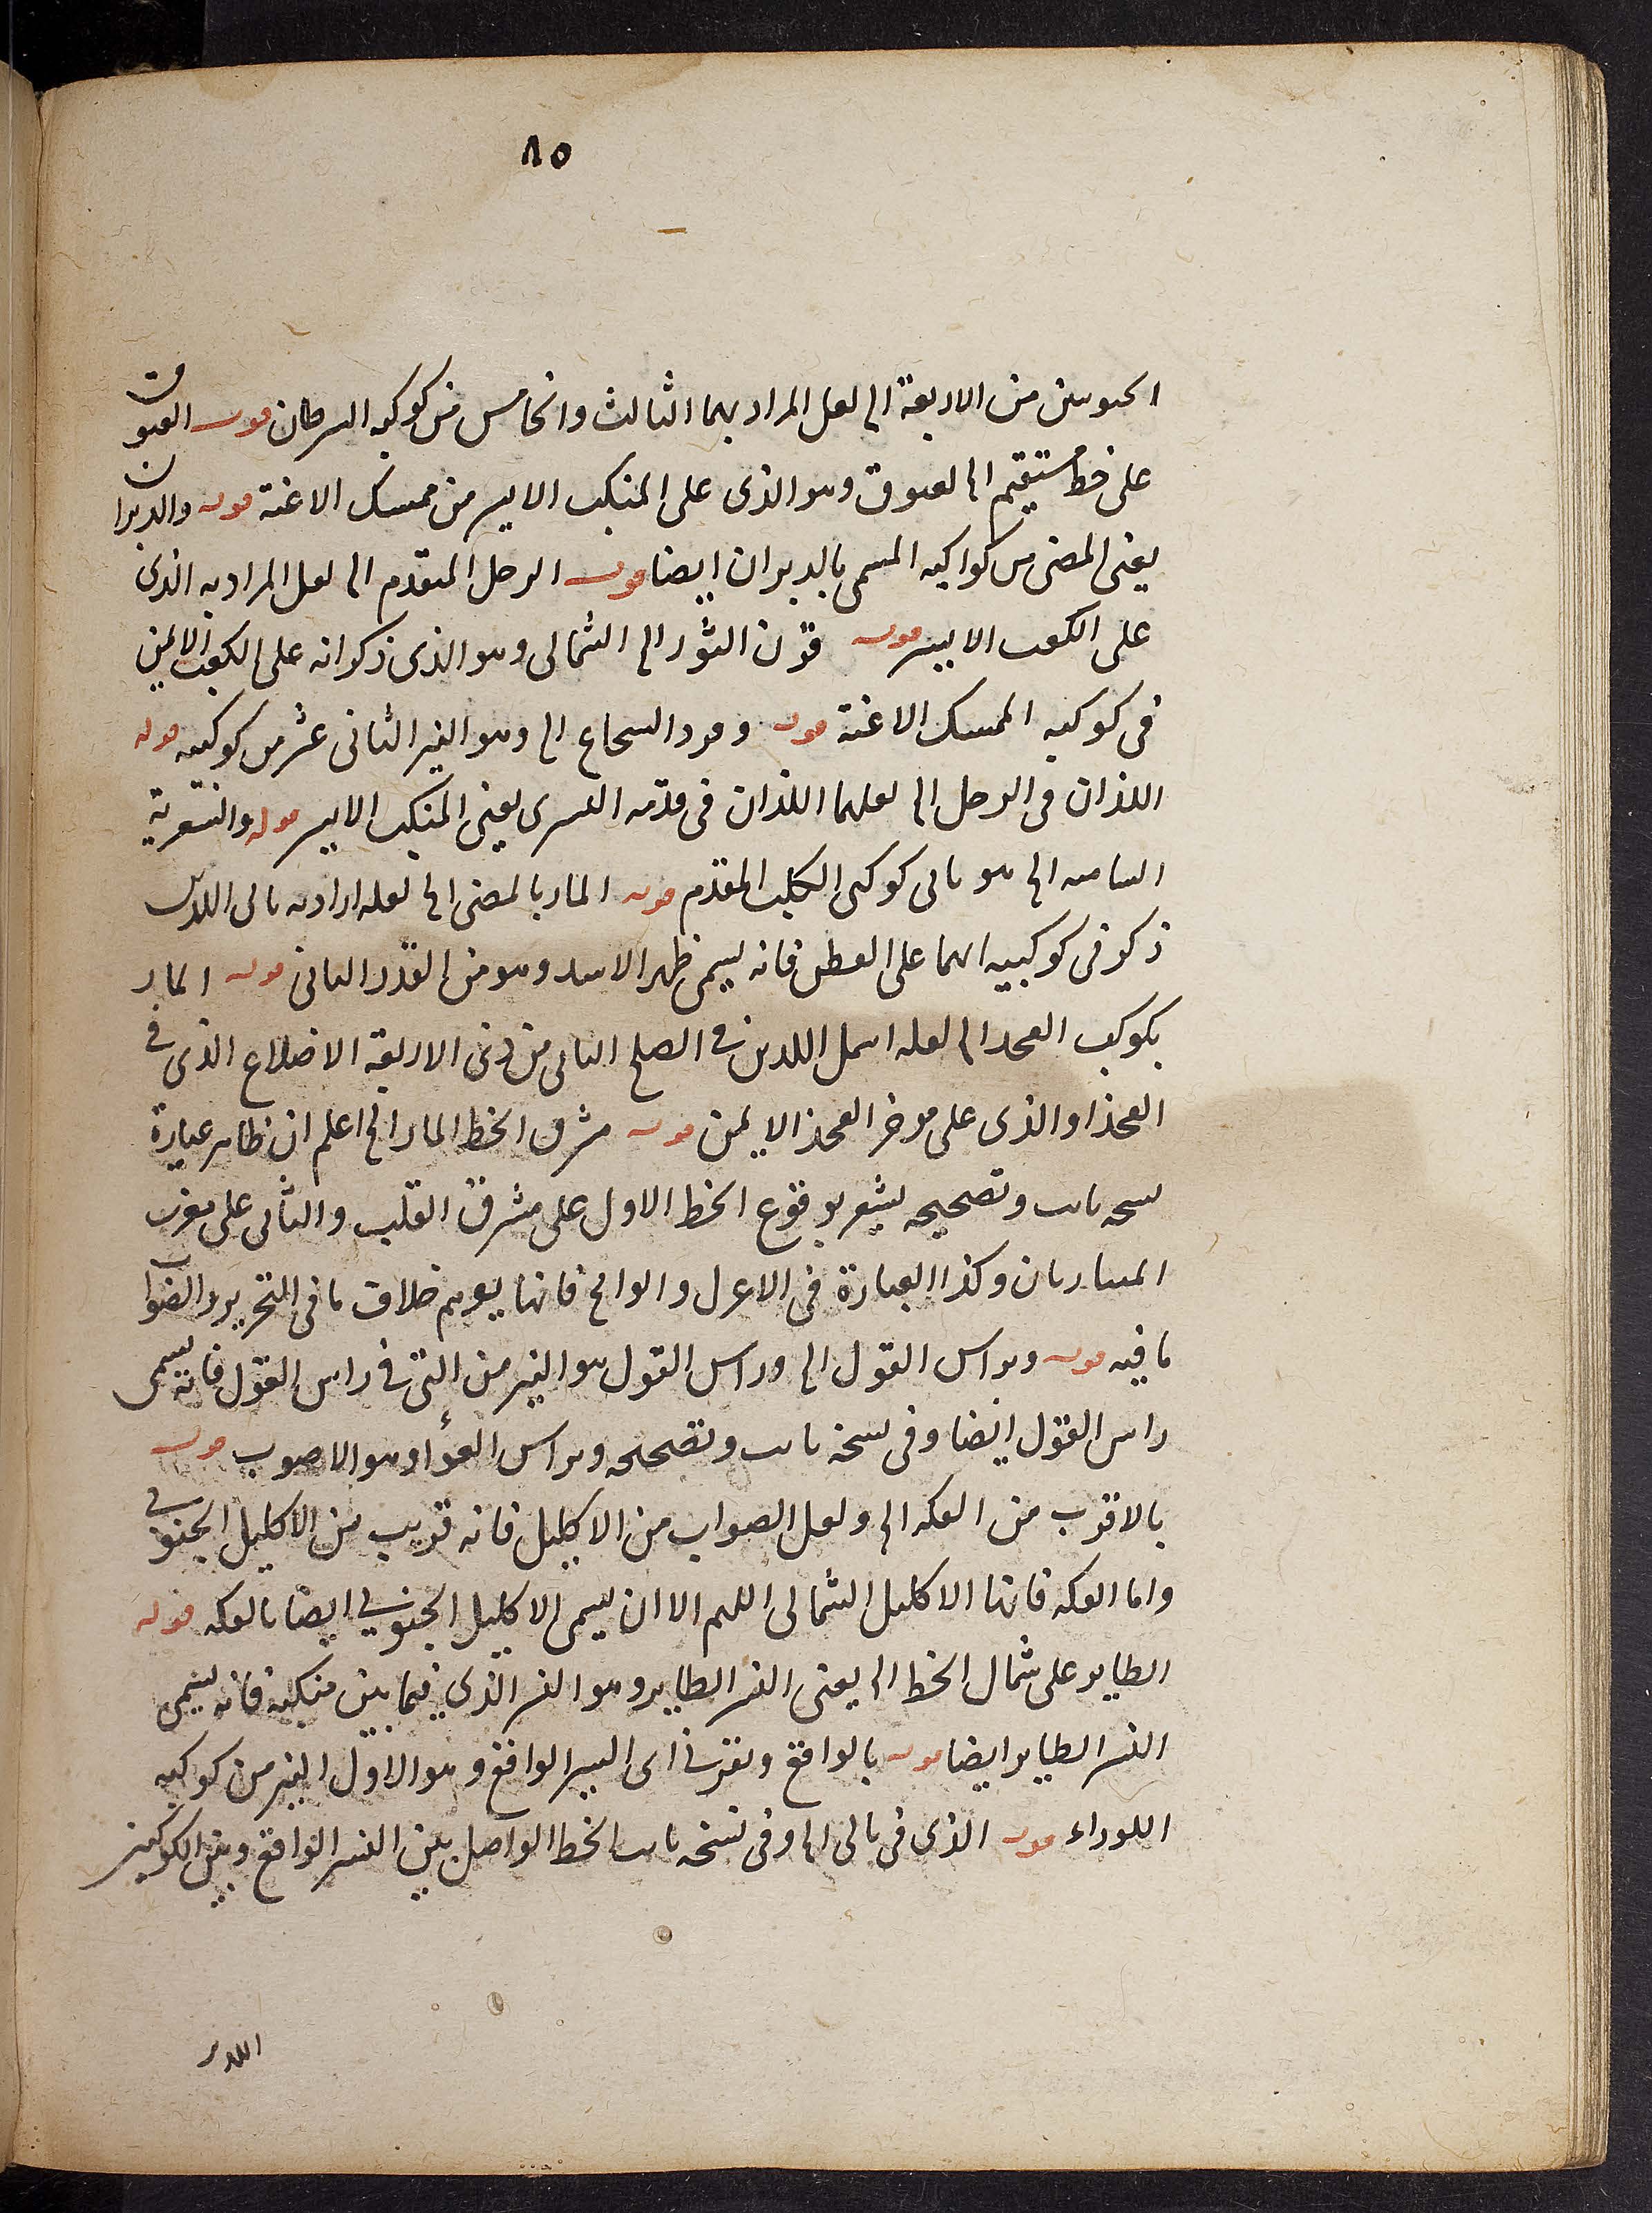 ٨٥
الجنوبيين من الاربعة الخ لعل المراد بهما الثالث والخامس من كوكبه السرطان قوله العيوق
على خط مستقيم الخ العيوق وهو الذى على المنكب الايسر من ممسك الاعنة قوله والدبران
يعنى المضى من كواكبه المسمى بالدبران ايضا قوله الرجل المتقدم الخ لعل المراد به الذى
على الكعب الايسر قوله قرن الثور الخ الشمالى وهو الذى ذكر انه على الكعب الايمن
فى كوكبه الممسك الاعنة قوله وفرد الشجاع الخ وهو النير الثانى عشر من كوكبيه قوله
اللذان فى الرجل الخ لعلهما اللذان فى قدمه اليسرى يعنى المنكب الايسر قوله والشعرى
الشاميه الخ هو ثانى كوكبى الكلب المقدم قوله المار بالمضى الخ لعله اراد به ثانى اللذين
ذكر فى كوكبيه انهما على القطن فانه يسمى ظهر الاسد وهو من القدر الثانى قوله المار
بكوكب الفخذ الخ لعله اسمل اللذين فى الضلع الثانى من ذى الاربعة الاضلاع الذى فى
الفخذ او الذى على موخر الفخذ الايمن قوله مشرق الخط المار الخ اعلم ان ظاهر عبارة
نسخه ثابت وتصحيحه يشعر بوقوع الخط الاول على مشرق القلب والثانى على مغرب
وكذا العبارة فى الاعزل والوامح فانها يوهم خلاف ما فى التحرير والصواب
ما فيه قوله وبراس الغول الخ وراس الغول هو النير من التى فى راس الغول فانه يسمى
راس الغول ايضا وفى نسخة ثابت وتصحيحه وبراس الفؤاد وهو الاصوب قوله
بالاقرب من الفكه الخ ولعل الصواب من الاكليل فانه قريب من الاكليل الجنوبى
واما الفكه فانها الاكليل الشمالى اللهم الا ان يسمى الاكليل الجنوبى ايضا بالفكه قوله
الطاير على شمال الخط الخ يعنى النسر الطاير وهو النير الذى فيما بين منكبيه فانه يسمى
النسر الطاير ايضا قوله بالواقع وبقربى اى النسر الواقع وهو الاول النير من كوكبه
اللوراء قوله الذى فى تالى الخ وفى نسخه ثابت الخط الواصل بين النسر الواقع وبين الكوكبين
اللذين